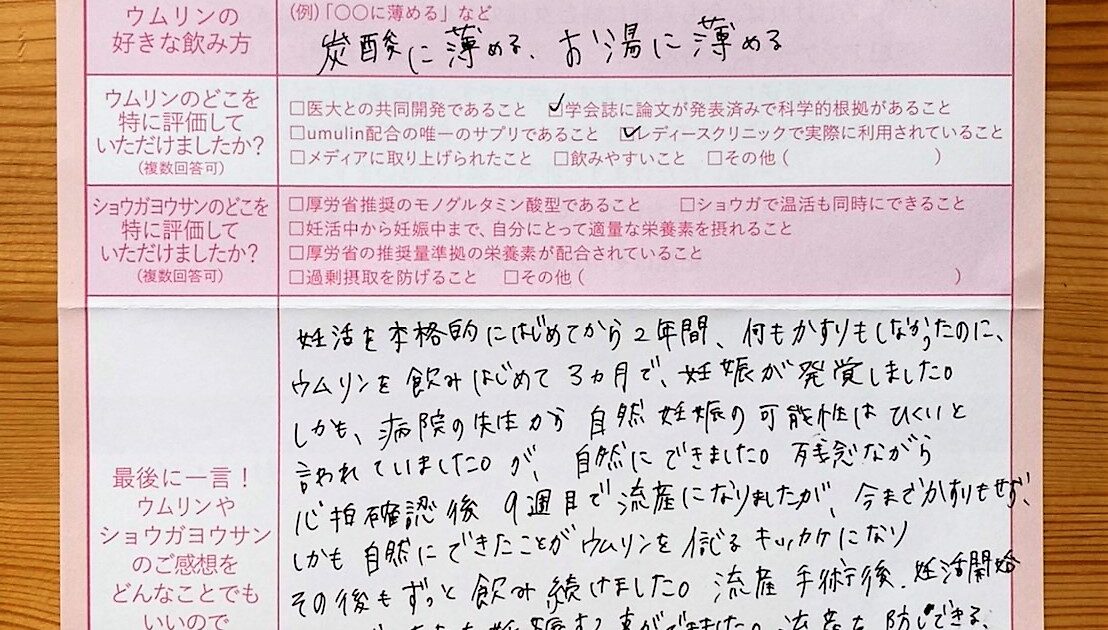 ウムリンの
好きな飲み方
(例)「〇〇に薄める」など
炭酸に薄める、お湯に薄める
ウムリンのどこを
特に評価して
いただけましたか?
(複数回答可)
□医大との共同開発であること ☑学会誌に論文が発表済みで科学的根拠があること
□umulin配合の唯一のサプリであること ☑レディースクリニックで実際に利用されていること
□メディアに取り上げられたこと □飲みやすいこと □その他( )
ショウガヨウサンのどこを
特に評価して
いただけましたか?
(複数回答可)
□厚労省推奨のモノグルタミン酸型であること □ショウガで温活も同時にできること
□妊活中から妊娠中まで、自分にとって適量な栄養素を摂れること
□厚労省の推奨量準拠の栄養素が配合されていること
□過剰摂取を防げること □その他( )
最後に一言!
ウムリンや
ショウガヨウサン
のご感想を
どんなことでも
いいので
妊活を本格的にはじめてから2年間、何もかすりもしなかったのに、
ウムリンを飲みはじめて3ヵ月で、妊娠が発覚しました。
しかも、病院の先生から自然妊娠の可能性はひくいと
言われていました。が、自然にできました。残念ながら
心拍確認後9週目で流産になりましたが、今までかすりもせず、
しかも自然にできたことがウムリンを信じるキッカケになり
その後もずっと飲み続けました。流産手術後、妊活開始
妊娠する事ができました。流産を防止できる、